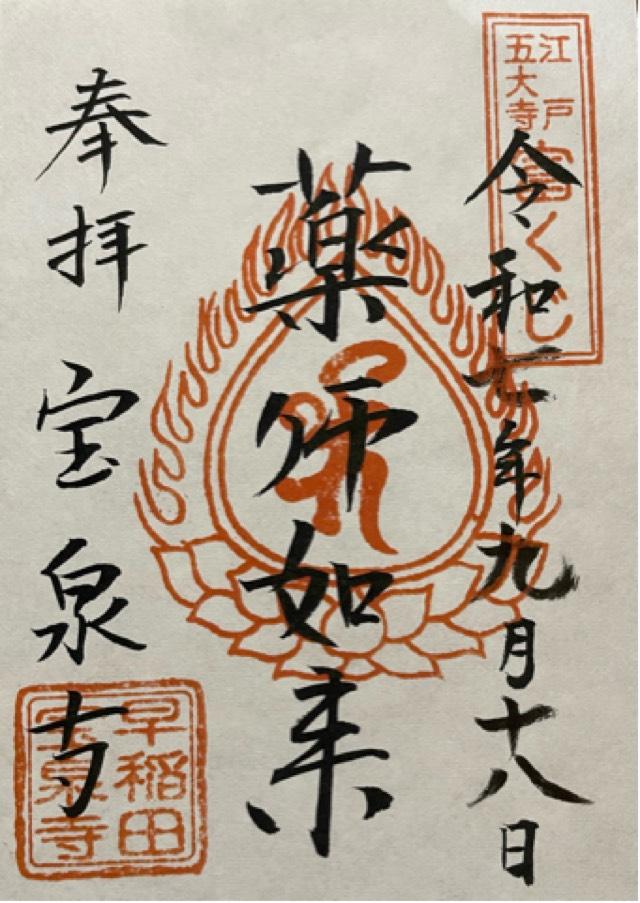 江戸
五大寺
富くじ
令和七年九月十八日
薬师如来
奉拝 宝泉寺
早稲田
宝泉寺